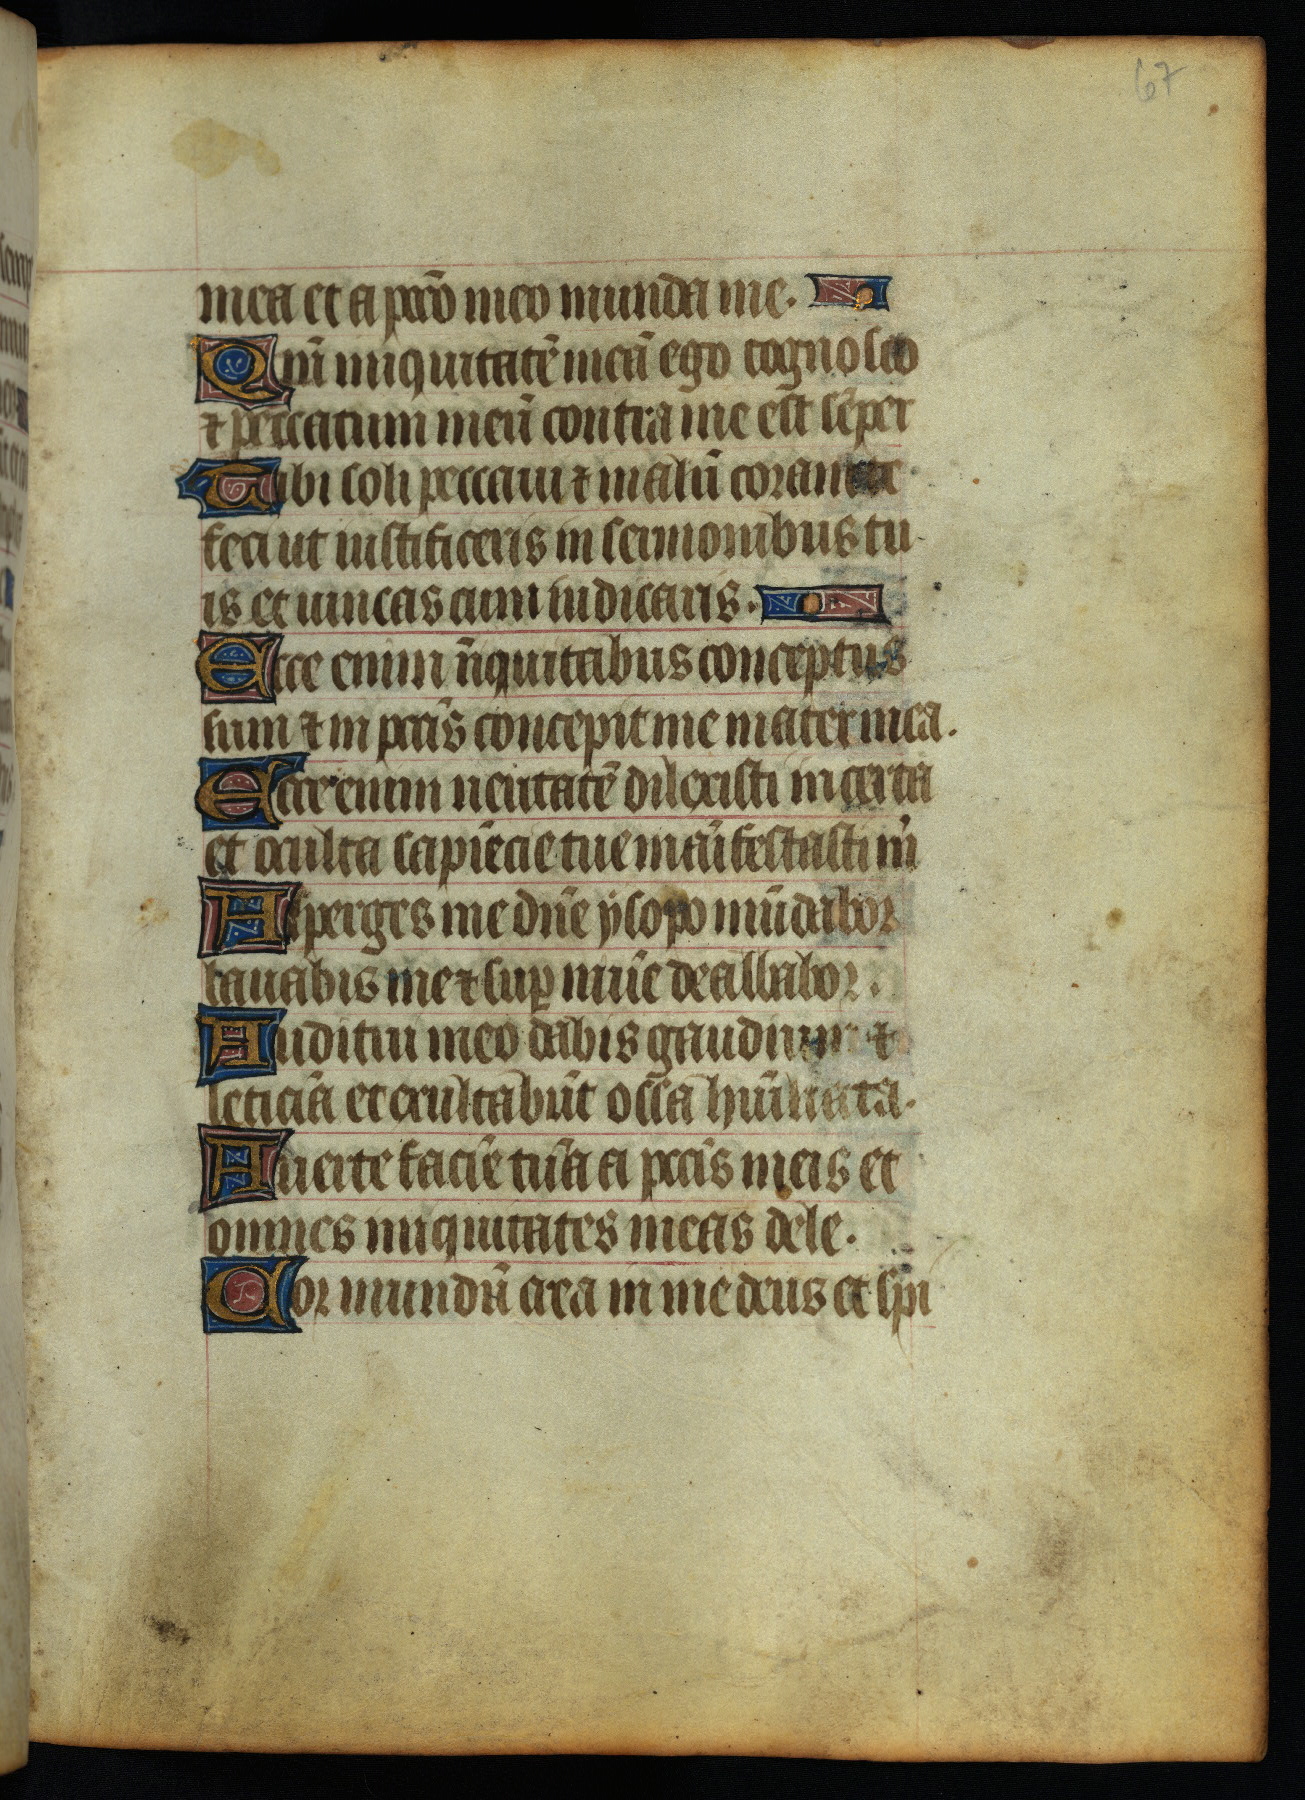 67
mea et a pccō meo munda me.
Qm̄ iniquitatē meā ego cognosco
⁊ peccatum meū contra me est sēper
Tibi soli peccaui ⁊ malū coram te
feci ut iustificeris in sermonibus tu
is et uincas cum iudicaris.
Ecce enim iīquitatibus conceptus
sum ⁊ in pccīs concepit me mater mea.
Ecce enim ueritatē dilexisti incerta
et oculta sapiēcie tue māifestasti m̄
Asperges me dn̄e ẏsopo mūdabor
lauabis me ⁊ sup niuē dealbabor.
Auditui meo dabis gaudium ⁊
leticiā et exultabūt ossa hūiliata.
Auerte faciē tuā a pccīs meis et
omnes iniquitates meas dele.
Cor mundū crea in me deus et spi